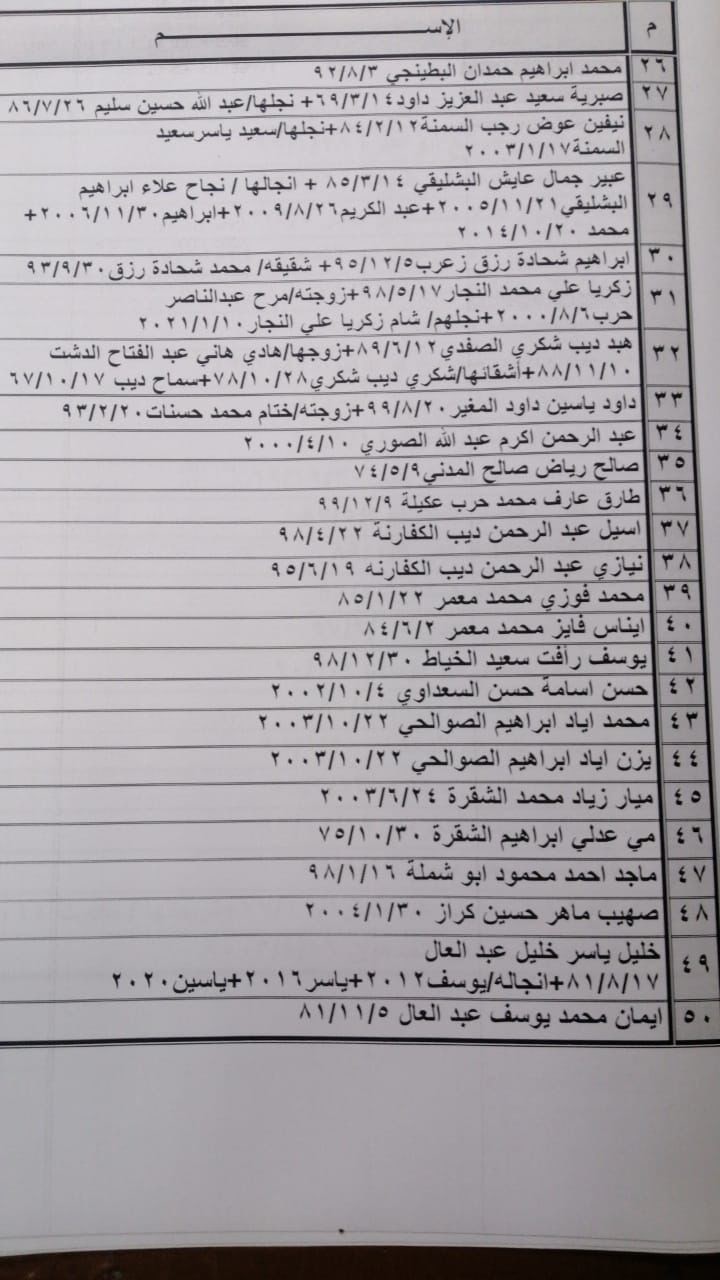 م الإســـــــــم
٢٦ محمد ابراهيم حمدان البطينجي ٩٢/٨/٣
٢٧ صبرية سعيد عبد العزيز داود٦٩/٣/١٤+ نجلها/عبد الله حسين سليم ٨٦/٧/٢٦
٢٨ نيفين عوض رجب السمنة٨٤/٢/١٢+نجلها/سعيد ياسرسعيد
السمنة٢٠٠٣/١/١٧
٢٩ عبير جمال عايش البشليقي ٨٥/٣/١٤ + انجالها / نجاح علاء ابراهيم
البشليقي٢٠٠٥/١١/٢١+عبد الكريم٢٠٠٩/٨/٢٦+ابراهيم٢٠٠٦/١١/٣٠+
محمد ٢٠١٤/١٠/٢٠
٣٠ ابراهيم شحادة رزق زعرب٩٥/١٢/٥+ شقيقه/ محمد شحادة رزق٩٣/٩/٣٠
٣١ زكريا علي محمد النجار٩٨/٥/١٧+زوجته/مرح عبدالناصر
حرب٢٠٠٠/٨/٦+نجلهم/ شام زكريا علي النجار٢٠٢١/١/١٠
٣٢ هبد ديب شكري الصفدي٨٩/٦/١٢+زوجها/هادي هاني عبد الفتاح الدشت
٨٨/١١/١٠+أشقائها/شكري ديب شكري٧٨/١٠/٢٨+سماح ديب ٦٧/١٠/١٧
٣٣ داود ياسين داود المغير٩٩/٨/٢٠+زوجته/ختام محمد حسنات٩٣/٢/٢٠
٣٤ عبد الرحمن اكرم عبد الله الصوري ٢٠٠٠/٤/١٠
٣٥ صالح رياض صالح المدني٧٤/٥/٩
٣٦ طارق عارف محمد حرب عكيلة ٩٩/١٢/٩
٣٧ اسيل عبد الرحمن ديب الكفارنة ٩٨/٤/٢٢
٣٨ نيازي عبد الرحمن ديب الكفارنه ٩٥/٦/١٩
٣٩ محمد فوزي محمد معمر ٨٥/١/٢٢
٤٠ ايناس فايز محمد معمر ٨٤/٦/٢
٤١ يوسف رأفت سعيد الخياط ٩٨/١٢/٣٠
٤٢ حسن اسامة حسن السعداوي ٢٠٠٢/١٠/٤
٤٣ محمد اياد ابراهيم الصوالحي ٢٠٠٣/١٠/٢٢
٤٤ يزن اياد ابراهيم الصوالحي ٢٠٠٣/١٠/٢٢
٤٥ ميار زياد محمد الشقرة ٢٠٠٣/٦/٢٤
٤٦ مي عدلي ابراهيم الشقرة ٧٥/١٠/٣٠
٤٧ ماجد احمد محمود ابو شملة ٩٨/١/١٦
٤٨ صهيب ماهر حسين كراز ٢٠٠٤/١/٣٠
٤٩ خليل ياسر خليل عبد العال
٨١/٨/١٧+انجاله/يوسف٢٠١٢+ياسر٢٠١٦+ياسين٢٠٢٠
٥٠ ايمان محمد يوسف عبد العال ٨١/١١/٥